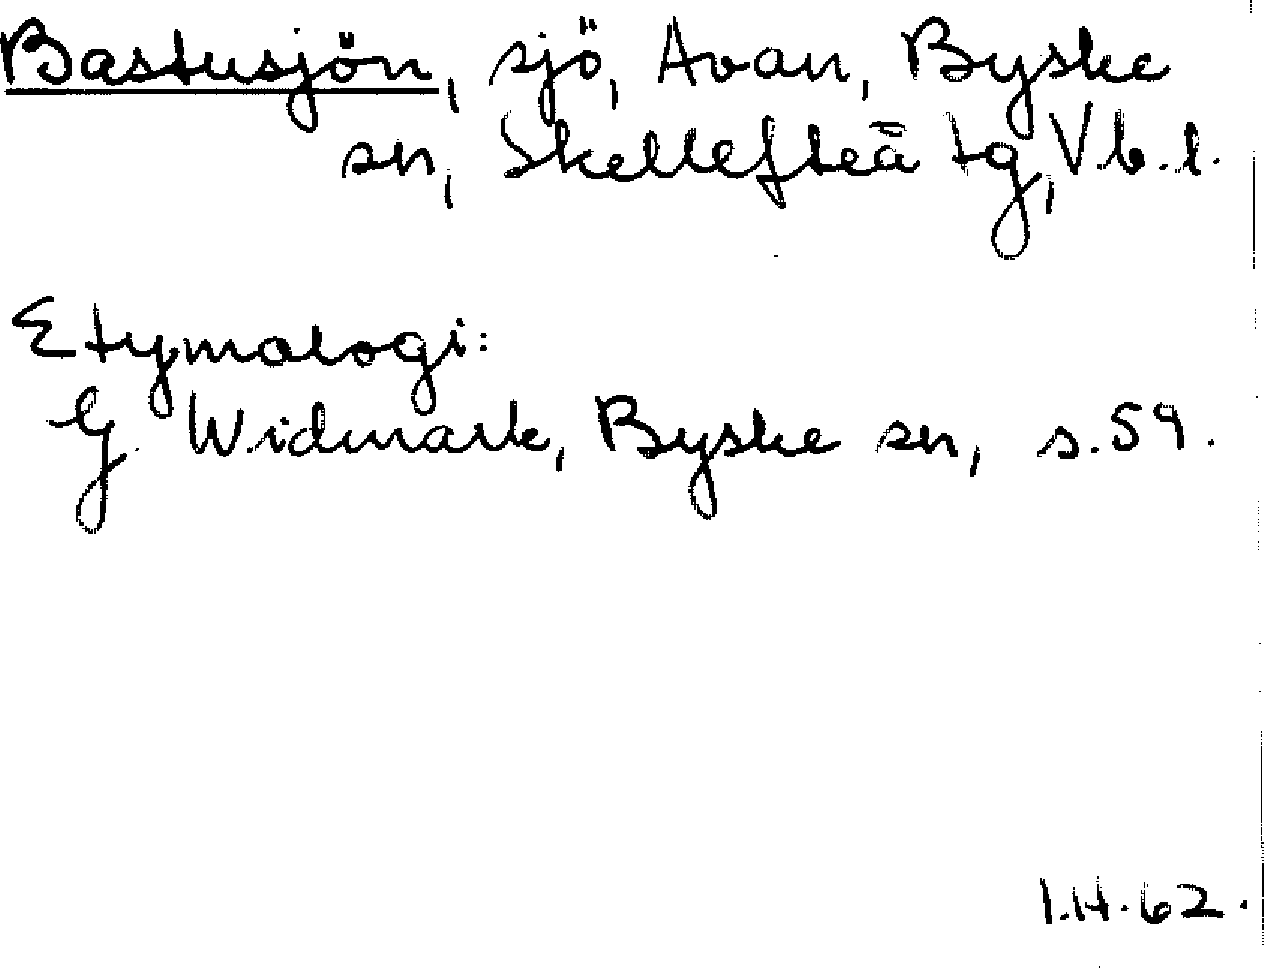 Bastusjön, sjö, Avan, Byske
sn, Skellefteå tg, Vb.l.
Etymologi:
G. Widmark, Byske sn, s.59.
I.H.62.